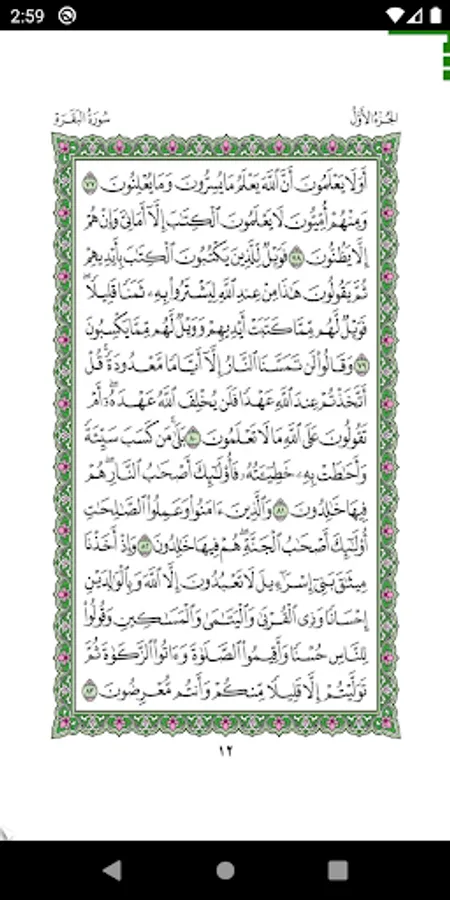 2:59
الجزء الأول
سورة البقرة
أَوَلَا يَعْلَمُونَ أَنَّ ٱللَّهَ يَعْلَمُ مَا يُسِرُّونَ وَمَا يُعْلِنُونَ ٧٧
وَمِنْهُمْ أُمِّيُّونَ لَا يَعْلَمُونَ ٱلْكِتَٰبَ إِلَّآ أَمَانِىَّ وَإِنْ هُمْ
إِلَّا يَظُنُّونَ ٧٨ فَوَيْلٌ لِّلَّذِينَ يَكْتُبُونَ ٱلْكِتَٰبَ بِأَيْدِيهِمْ
ثُمَّ يَقُولُونَ هَٰذَا مِنْ عِندِ ٱللَّهِ لِيَشْتَرُوا۟ بِهِۦ ثَمَنًا قَلِيلًا ۖ
فَوَيْلٌ لَّهُم مِّمَّا كَتَبَتْ أَيْدِيهِمْ وَوَيْلٌ لَّهُم مِّمَّا يَكْسِبُونَ
٧٩ وَقَالُوا۟ لَن تَمَسَّنَا ٱلنَّارُ إِلَّآ أَيَّامًا مَّعْدُودَةً ۚ قُلْ
أَتَّخَذْتُمْ عِندَ ٱللَّهِ عَهْدًا فَلَن يُخْلِفَ ٱللَّهُ عَهْدَهُۥٓ ۖ أَمْ
تَقُولُونَ عَلَى ٱللَّهِ مَا لَا تَعْلَمُونَ ٨٠ بَلَىٰ مَن كَسَبَ سَيِّئَةً
وَأَحَٰطَتْ بِهِۦ خَطِيٓـَٔتُهُۥ فَأُو۟لَٰٓئِكَ أَصْحَٰبُ ٱلنَّارِ ۖ هُمْ
فِيهَا خَٰلِدُونَ ٨١ وَٱلَّذِينَ ءَامَنُوا۟ وَعَمِلُوا۟ ٱلصَّٰلِحَٰتِ
أُو۟لَٰٓئِكَ أَصْحَٰبُ ٱلْجَنَّةِ ۖ هُمْ فِيهَا خَٰلِدُونَ ٨٢ وَإِذْ أَخَذْنَا
مِيثَٰقَ بَنِىٓ إِسْرَٰٓءِيلَ لَا تَعْبُدُونَ إِلَّا ٱللَّهَ وَبِٱلْوَٰلِدَيْنِ
إِحْسَانًا وَذِى ٱلْقُرْبَىٰ وَٱلْيَتَٰمَىٰ وَٱلْمَسَٰكِينِ وَقُولُوا۟
لِلنَّاسِ حُسْنًا وَأَقِيمُوا۟ ٱلصَّلَوٰةَ وَءَاتُوا۟ ٱلزَّكَوٰةَ ثُمَّ
تَوَلَّيْتُمْ إِلَّا قَلِيلًا مِّنكُمْ وَأَنتُم مُّعْرِضُونَ ٨٣
١٢